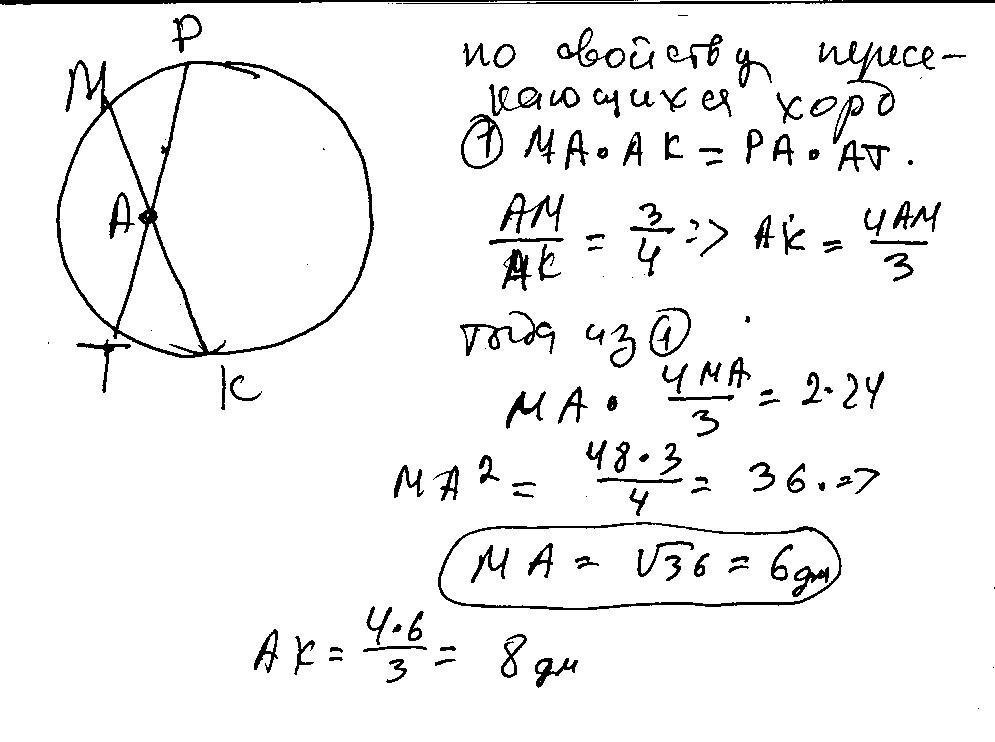 P
M
A
T
K
по свойству пересе-
кающихся хорд
① MA • AK = PA • AT.
AM/AK = 3/4 => AK = 4AM/3
тогда из ①
MA • 4MA/3 = 2·24
MA² = 48·3/4 = 36. =>
MA = √36 = 6 дм
AK = 4·6/3 = 8 дм